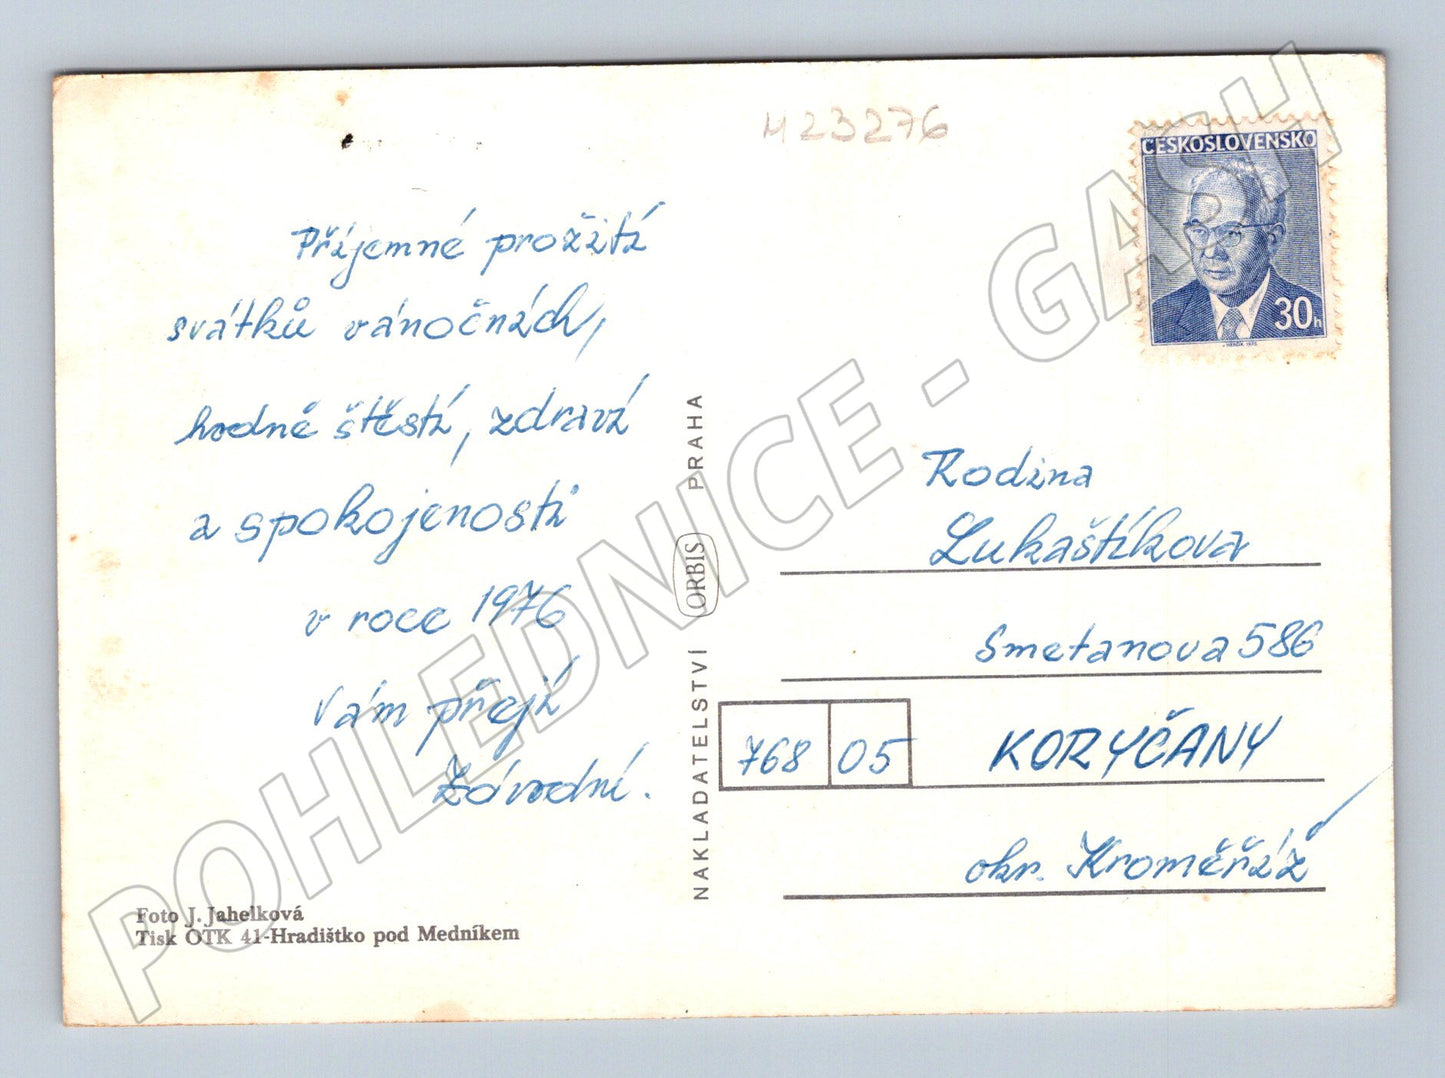 M 23276
ČESKOSLOVENSKO
30h
Příjemné prožití
svátků vánočních,
hodně štěstí, zdraví
a spokojenosti
v roce 1976
Vám přejí
Závodní.
Foto J. Jahelková
Tisk OTK 41-Hradištko pod Medníkem
NAKLADATELSTVÍ ORBIS PRAHA
Rodina
Lukaštíkova
Smetanova 586
768 05 KORYČANY
okr. Kroměříž
POHLEDNICE - GASH